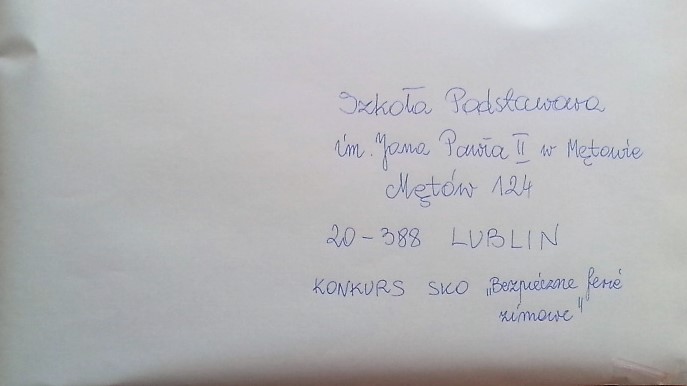 Szkoła Podstawowa
im. Jana Pawła II w Mętowie
Mętów 124
20-388 LUBLIN
KONKURS SKO „Bezpieczne ferie
zimowe"